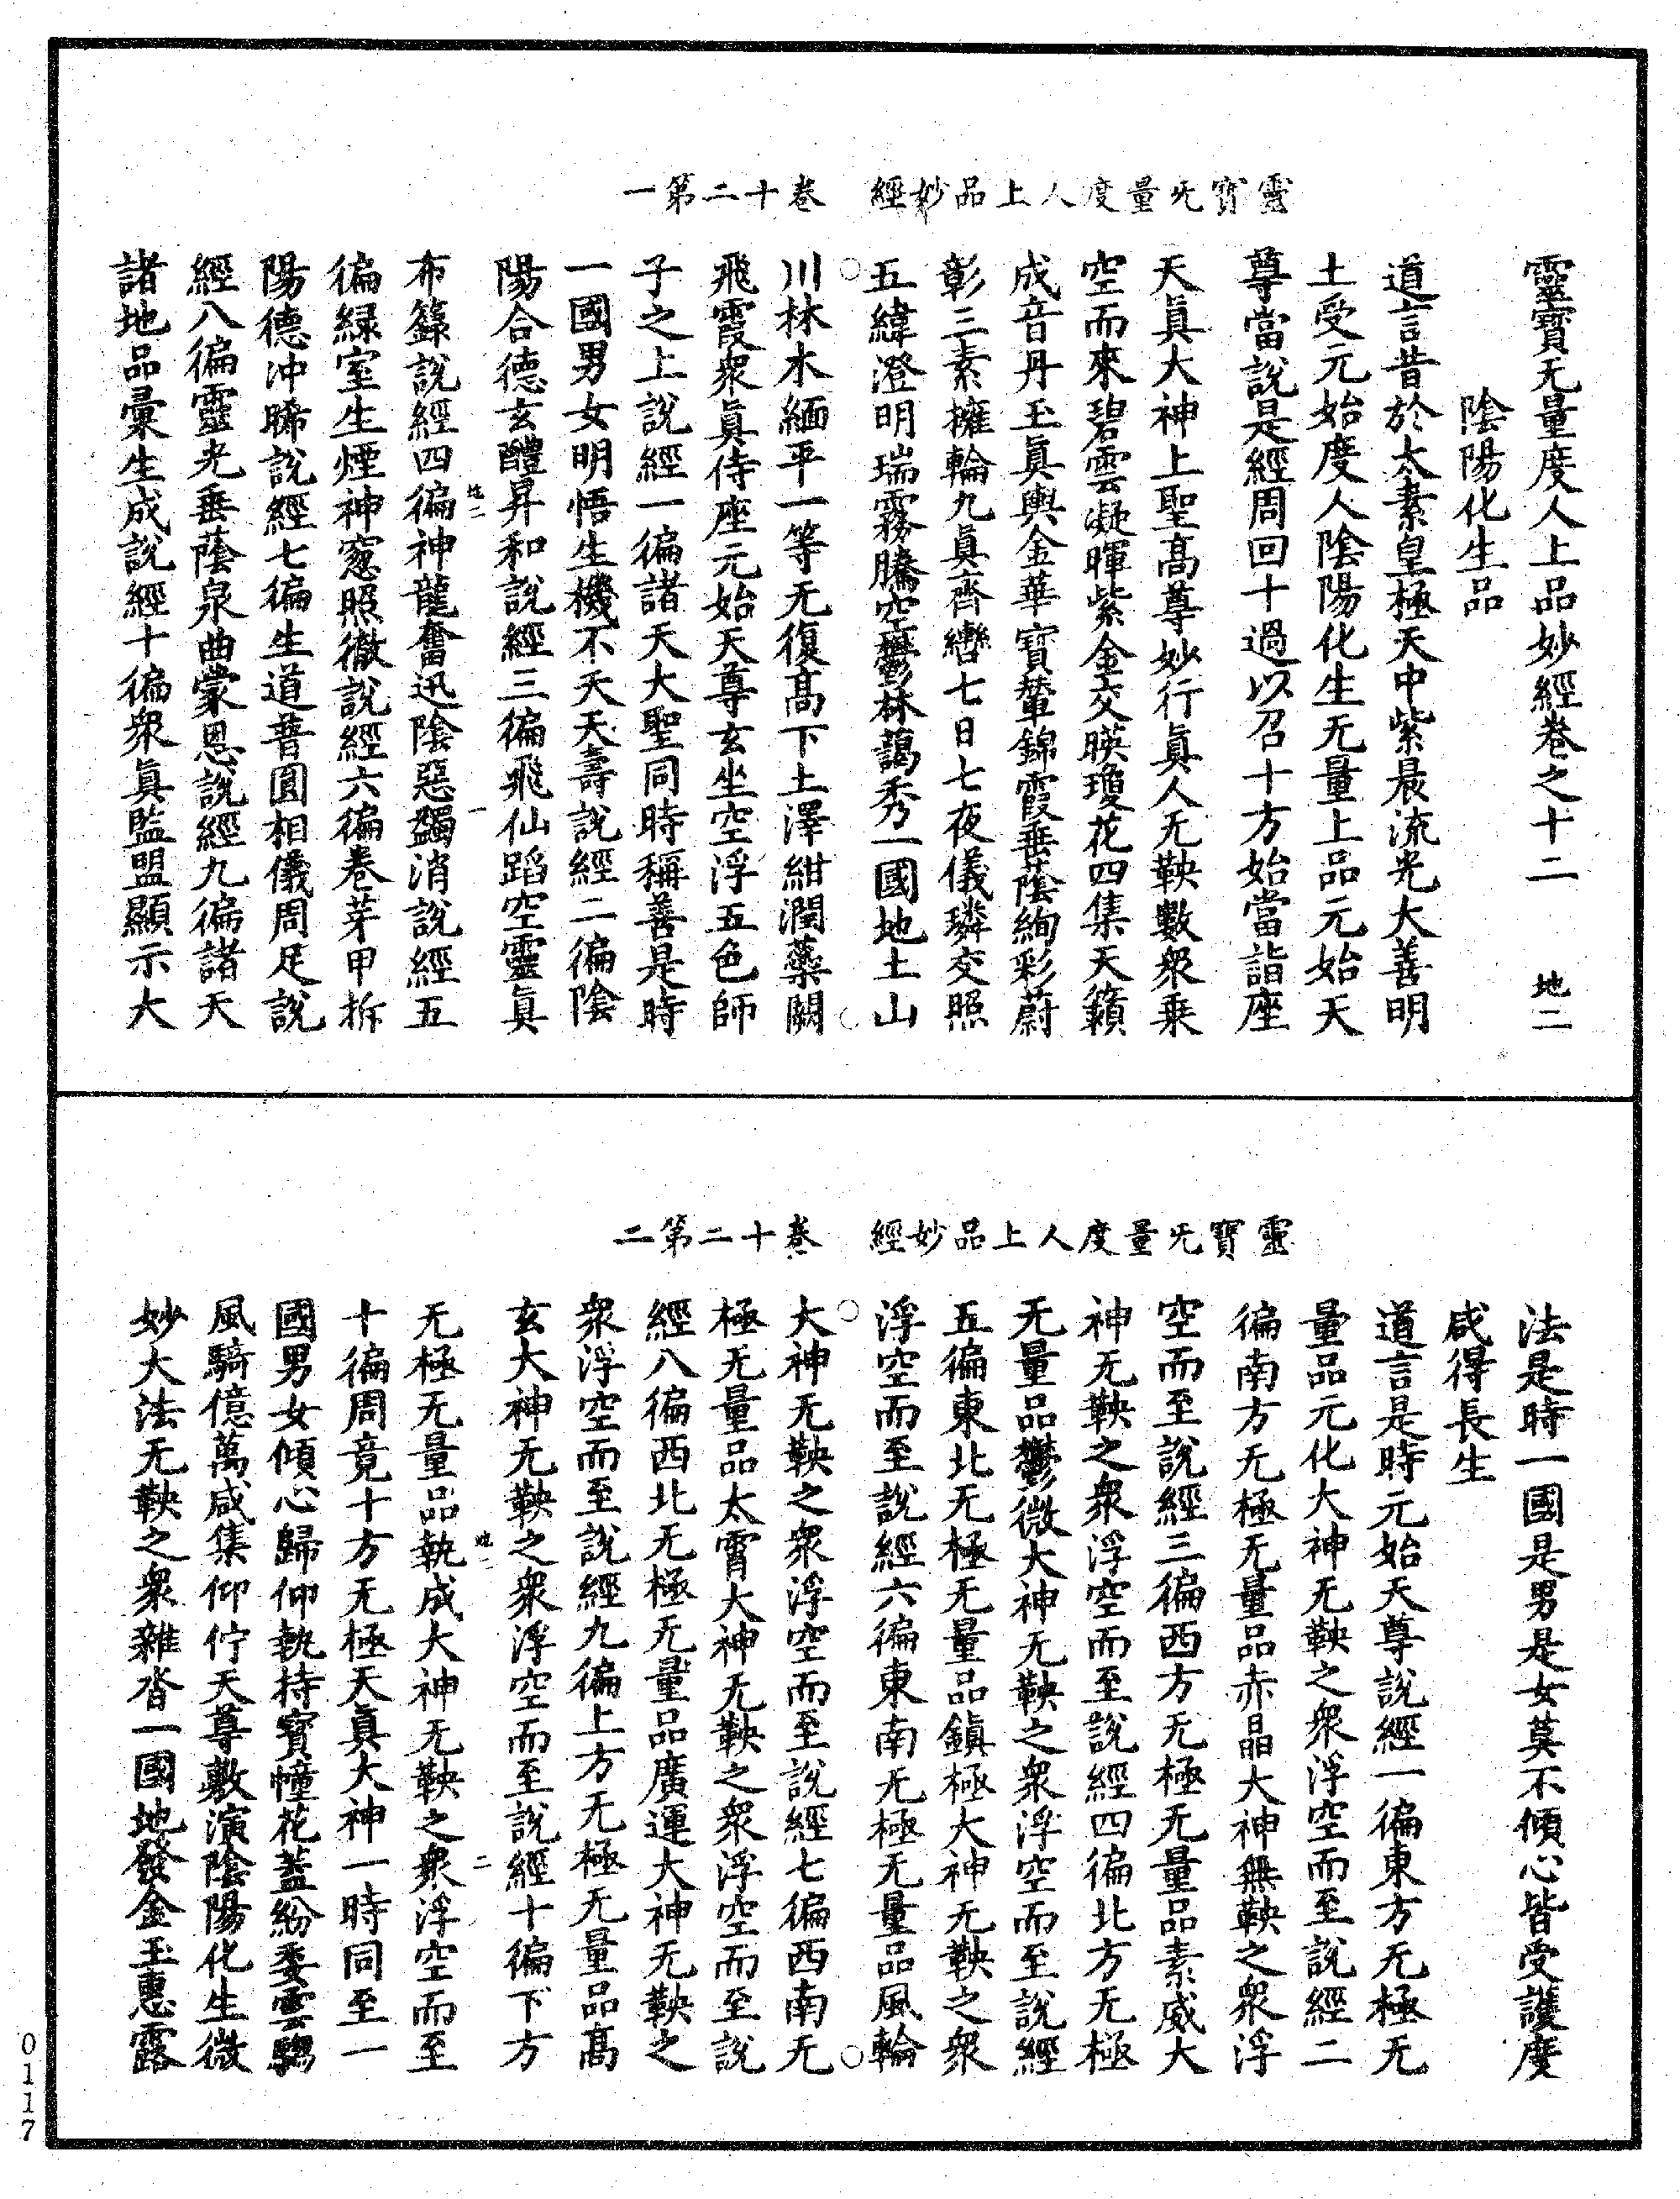 靈寶无量度人上品妙經　卷十二第一
靈寶无量度人上品妙經卷之十二　地二
陰陽化生品
道言昔於太素皇極天中紫晨流光大善明
土受元始度人陰陽化生无量上品元始天
尊當說是經周回十過以召十方始當詣座
天真大神上聖高尊妙行真人无鞅數衆乗
空而來碧雲凝暉紫金交暎瓊花四集天籟
成音丹玉眞輿金華寶輦錦霞垂蔭絢彩蔚
彰三素擁輪九眞齊轡七日七夜儀璘交照
五緯澄明瑞霧騰空鬱林藹秀一國地土山
川林木緬平一等无復高下土澤紺潤蘂闕
飛霞衆眞侍座元始天尊玄坐空浮五色師
子之上說經一徧諸天大聖同時稱善是時
一國男女明悟生機不夭天壽說經二徧陰
陽合德玄醴昇和說經三徧飛仙蹈空靈眞
布籙說經四徧神龍奮迅陰惡蠲消說經五
徧綠室生煙神窓照徹說經六徧卷芽甲拆
陽德沖晞說經七徧生道普圓相儀周足說
經八徧靈光垂蔭泉曲蒙恩說經九徧諸天
諸地品彙生成說經十徧衆眞監盟顯示大
地二　一
靈寶无量度人上品妙經　卷十二第二
法是時一國是男是女莫不傾心皆受護度
咸得長生
道言是時元始天尊說經一徧東方无極无
量品元化大神无鞅之衆浮空而至說經二
徧南方无極无量品赤晶大神無鞅之衆浮
空而至說經三徧西方无極无量品素威大
神无鞅之衆浮空而至說經四徧北方无極
无量品鬱微大神无鞅之衆浮空而至說經
五徧東北无極无量品鎭極大神无鞅之衆
浮空而至說經六徧東南无極无量品風輪
大神无鞅之衆浮空而至說經七徧西南无
極无量品太霄大神无鞅之衆浮空而至說
經八徧西北无極无量品廣運大神无鞅之
衆浮空而至說經九徧上方无極无量品高
玄大神无鞅之衆浮空而至說經十徧下方
无極无量品執成大神无鞅之衆浮空而至
十徧周竟十方无極天眞大神一時同至一
國男女傾心歸仰執持寶幢花蓋紛委雲驂
風騎億萬咸集仰佇天尊敷演陰陽化生微
妙大法无鞅之衆雜沓一國地發金玉惠露
地二　二
0117